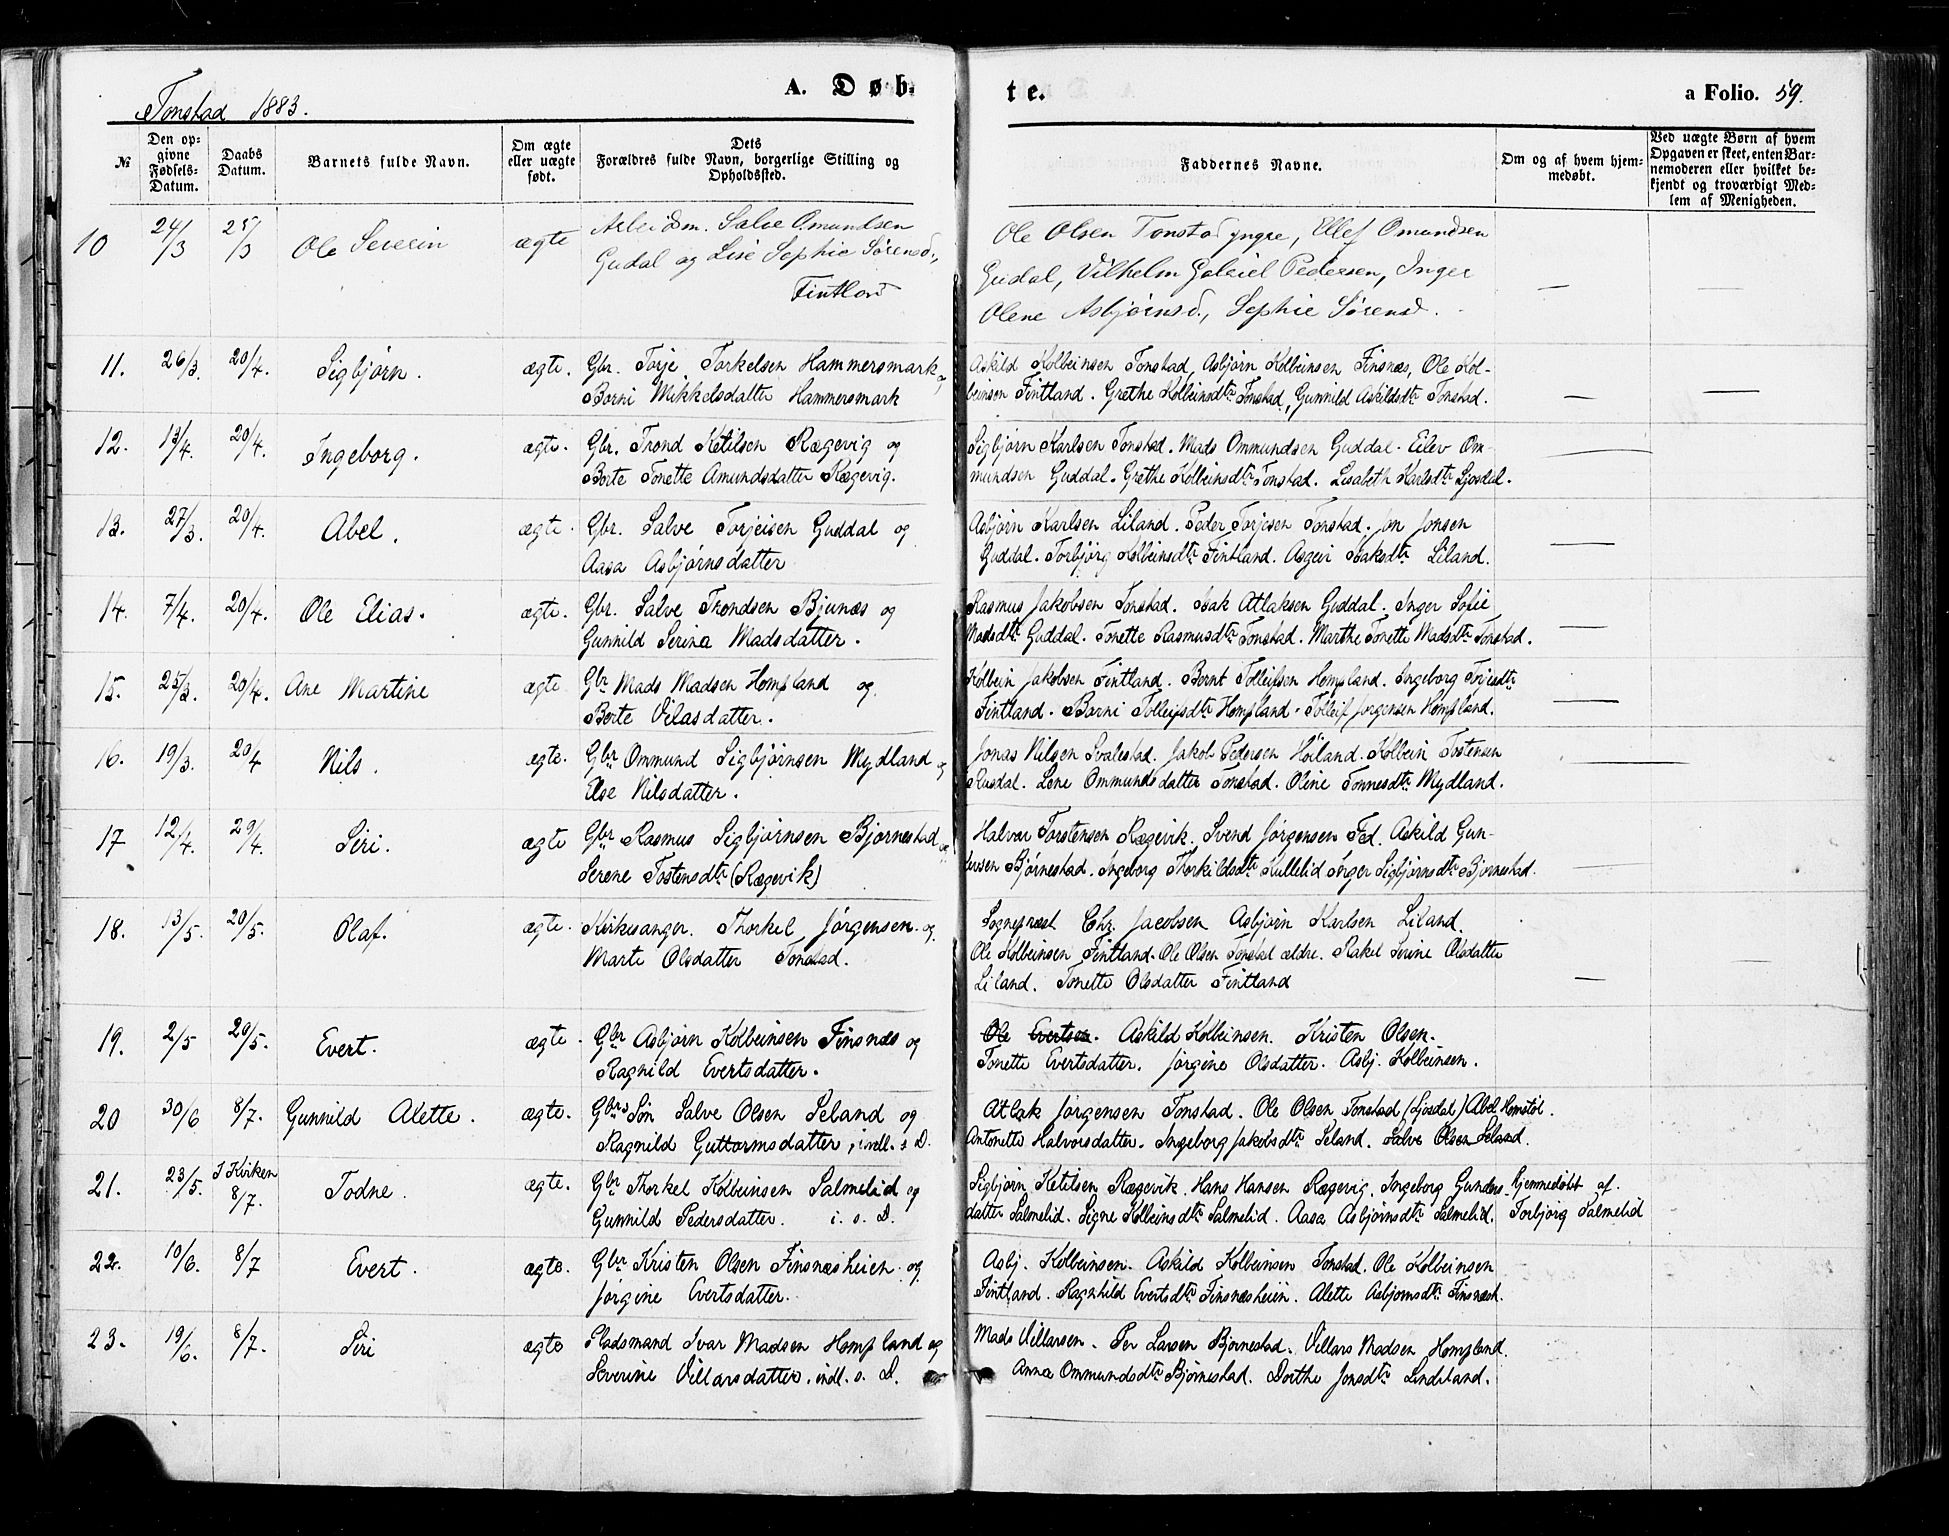 Tonstad 1883.
A. Døb-
te.
a Folio. 59.
№
Den op-
givne
Fødsels-
Datum.
Daabs
Datum.
Barnets fulde Navn.
Om ægte
eller uægte
født.
Dets
Forældres fulde Navn, borgerlige Stilling og
Opholdssted.
Faddernes Navne.
Om og af hvem hjem-
medøbt.
Ved uægte Børn af hvem
Opgaven er skeet, enten Bar-
nemoderen eller hvilket be-
kjendt og troværdigt Med-
lem af Menigheden.
10 24/3 25/3 Ole Severin ægte Arbeidsm. Salve Omundsen
Gudal og Lise Sophie Sørensd.,
Fintland
Ole Olsen Tonstad yngre, Ellef Omundsen
Gudal, Vilhelm Gabriel Pedersen, Inger
Olene Asbjørnsd., Sophie Sørensd.
11. 26/3. 20/4. Sigbjørn. ægte. Gbr. Torje Torkelsen Hammersmark og
Borni Mikkelsdatter Hammersmark
Askild Kolbeinsen Tonstad, Asbjørn Kolbeinsen Finsnæs, Ole Kol-
beinsen Fintland. Grethe Kolbeinsdtr Tonstad, Gunnild Askildsdtr Tonstad.
12. 13/4. 20/4. Ingeborg. ægte. Gbr. Trond Ketilsen Rægevig og
Berte Tonette Amundsdatter Rægevig.
Sigbjørn Karlsen Tonstad. Mads Ommundsen Guddal. Eilev Om-
mundsen Guddal. Grethe Kolbeinsdtr Tonstad. Lisabeth Karlsdtr Ljosdal.
13. 27/3. 20/4. Abel. ægte. Gbr. Salve Torjeisen Guddal og
Aasa Asbjørnsdatter
Asbjørn Karlsen Liland. Peder Torjesen Tonstad. Jon Jonsen
Guddal. Torbjørg Kolbeinsdtr Fintland. Asgeir Isaksdtr Liland.
14. 7/4. 20/4. Ole Elias. ægte. Gbr. Salve Trondsen Bjunæs og
Gunnild Serina Madsdatter.
Rasmus Jakobsen Tonstad. Isak Atlaksen Guddal. Inger Sofie
Madsdtr Guddal. Tonette Rasmusdtr Tonstad. Marthe Tonette Madsdtr Tonstad.
15. 25/3. 20/4. Ane Martine ægte Gbr Mads Madsen Hompland og
Berte Vilasdatter.
Kolbein Jakobsen Fintland. Bernt Tolleifsen Hompland. Ingeborg Torjesdtr
Fintland. Borni Tolleifsdtr Hompland. Tolleif Jørgensen Hompland.
16. 19/3. 20/4 Nils. ægte. Gbr Ommund Sigbjørnsen Mydland og
Else Nilsdatter.
Jonas Nilsen Svalestad. Jakob Pedersen Høiland. Kolbein Tostensen
Rusdal. Lene Ommundsdatter Tonstad. Oline Tonnesdtr Mydland.
17 12/4. 29/4. Siri. ægte Gbr Rasmus Sigbjørnsen Bjørnestad og
Serene Tostensdtr (Rægevik)
Halvor Torstensen Rægevik. Svend Jørgensen Fed. Askild Gun-
dersen Bjørnestad. Ingeborg Thorkildsdtr Kullelid Inger Sigbjørnsdtr Bjørnestad.
18. 13/5. 20/5. Olaf. ægte. Kirkesanger. Thorkel Jørgensen og
Marte Olsdatter Tonstad.
Sogneprest Chr. Jacobsen Asbjørn Karlsen Liland.
Ole Kolbeinsen Fintland. Ole Olsen Tonstad ældre. Rakel Serine Olsdatter
Liland. Tonette Olsdatter Fintland
19. 2/5 20/5. Evert. ægte. Gbr Asbjørn Kolbeinsen Finsnæs og
Ragnild Evertsdatter.
Ole Evertsen. Askild Kolbeinsen. Kristen Olsen.
Tonette Evertsdatter. Jørgine Olsdatter. Asbj. Kolbeinsen.
20 30/6 8/7. Gunnild Alette. ægte. Gbrs Søn Salve Olsen Seland og
Ragnild Guttormsdatter, indl. s D.
Atlak Jørgensen Tonstad. Ole Olsen Tonstad (Ljosdal) Abel Homstøl.
Antonette Halvorsdatter. Ingeborg Jakobsdtr Seland. Salve Olsen Seland.
21. 23/5. I Kirken
8/7. Todne. ægte. Gbr Thorkel Kolbeinsen Salmelid og
Gunnild Pedersdatter. i. s. D.
Sigbjørn Ketilsen Rægevik. Hans Hansen Rægevig. Ingeborg Gunders-
datter Salmelid. Signe Kolbeinsdtr Salmelid. Aasa Asbjørnsdtr Salmelid.
hjemmedøbt af
Torbjørg Salmelid
22. 10/6. 8/7 Evert. ægte. Gbr Kristen Olsen Finsnæsheien og
Jørgine Evertsdatter.
Asbj. Kolbeinsen. Askild Kolbeinsen Tonstad. Ole Kolbeinsen
Fintland. Ragnhild Evertsdtr Finsnæsheien. Alette Asbjørnsdtr Finsnæsh.
23. 19/6. 8/7. Siri ægte Pladsmand Ivar Madsen Hompland og
Severine Villarsdatter. indl. s. D.
Mads Villarsen. Per Larsen Bjørnestad. Villars Madsen Hompland.
Anna Ommundsdtr Bjørnestad. Dorthe Jonsdtr Lindeland.